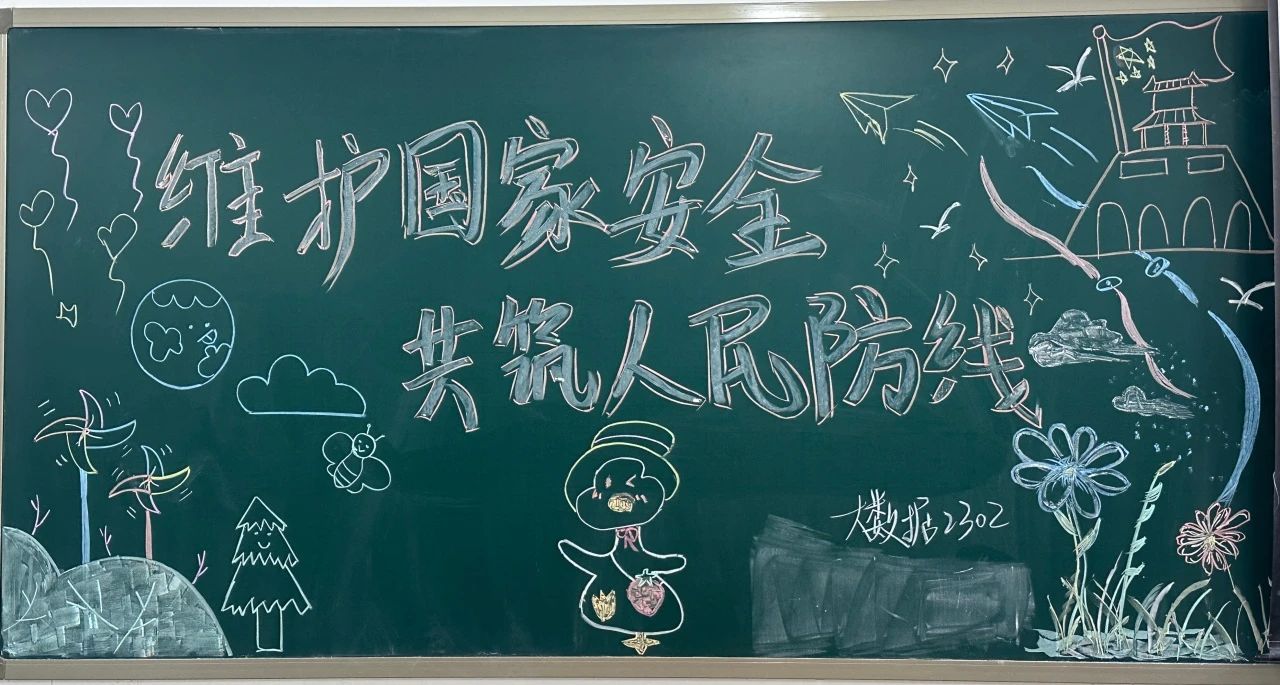 维护国家安全
共筑人民防线
大数据2302